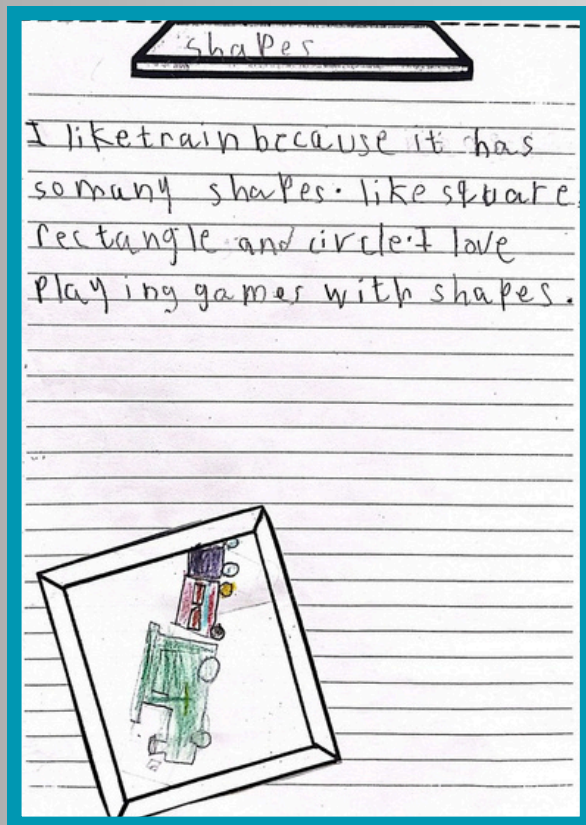 shapes
I like train because it has
so many shapes. like square,
rectangle and circle. I love
playing games with shapes.